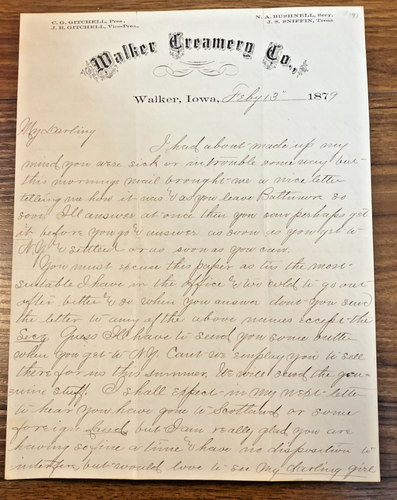 C. G. GITCHELL, Pres.
J. B. GITCHELL, Vice-Pres.
N. A. BUSHNELL, Secy.
J. S. SNIFFIN, Treas
Walker Creamery Co.,
Walker, Iowa, Feby 13" 1879
My Darling
I had about made up my
mind you were sick or in trouble some way but
this morning mail brought me a nice letter
telling me how it was & as you leave Baltimore so
soon I'll answer at once then you can perhaps get
it before you go & answer as soon as you get to
N.Y. & settled or as soon as you can.
You must excuse this paper as tis the most
suitable I have in the office & tis cold to go out
after better & so when you answer dont you send
the letter to any of the above names except the
Secy. Guess I'll have to send you some butter
when you get to N.Y. Cant we employ you to sell
there for us this summer. We will send the gen-
uine stuff. I shall expect in my next letter
to hear you have gone to Scotland or some
foreign land but I am really glad you are
having so fine a time & have no disposition to
interfere, but would love to see my darling girl